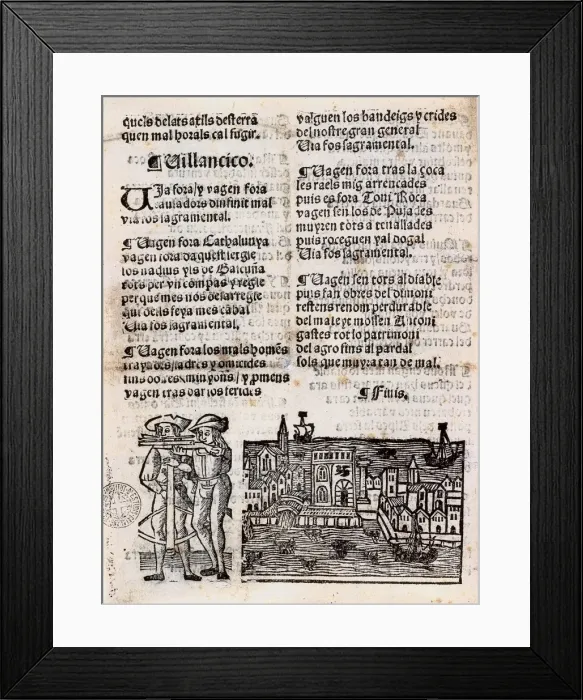 quels delats atils desterra
quen mal horals cal fugir.
¶ Uillancico.
UJa fora/y vagen fora
dors dinfinit mal
via fos sagramental.
¶ Uagen fora Cathalunya
vagen fora
los
fora per vn compas y regle
perque mes nos desarregle
qui dells feya mes cabal
Uia fos sagramental.
¶ Uagen fora los mals homẽs
traydors/ladres y omicides
y pmens
vagen tras dar los ferides
valguen los bandeigs y crides
del nostre gran general
Uia fos sagramental.
¶ Uagen fora tras la coca
les raels mig arrencades
puis es fora Toni Roca
vagen sen los de Pujades
muyren tots a tenallades
puis roceguen yal nogal
Uia fos sagramental.
¶ Uagen sen tots al diable
puis fan obres del dimoni
restens renom perdurable
del mateye mossen Antoni
gastes tot lo patrimoni
del agro fins al pardal
sols que muyra tan de mal.
¶ Finis.